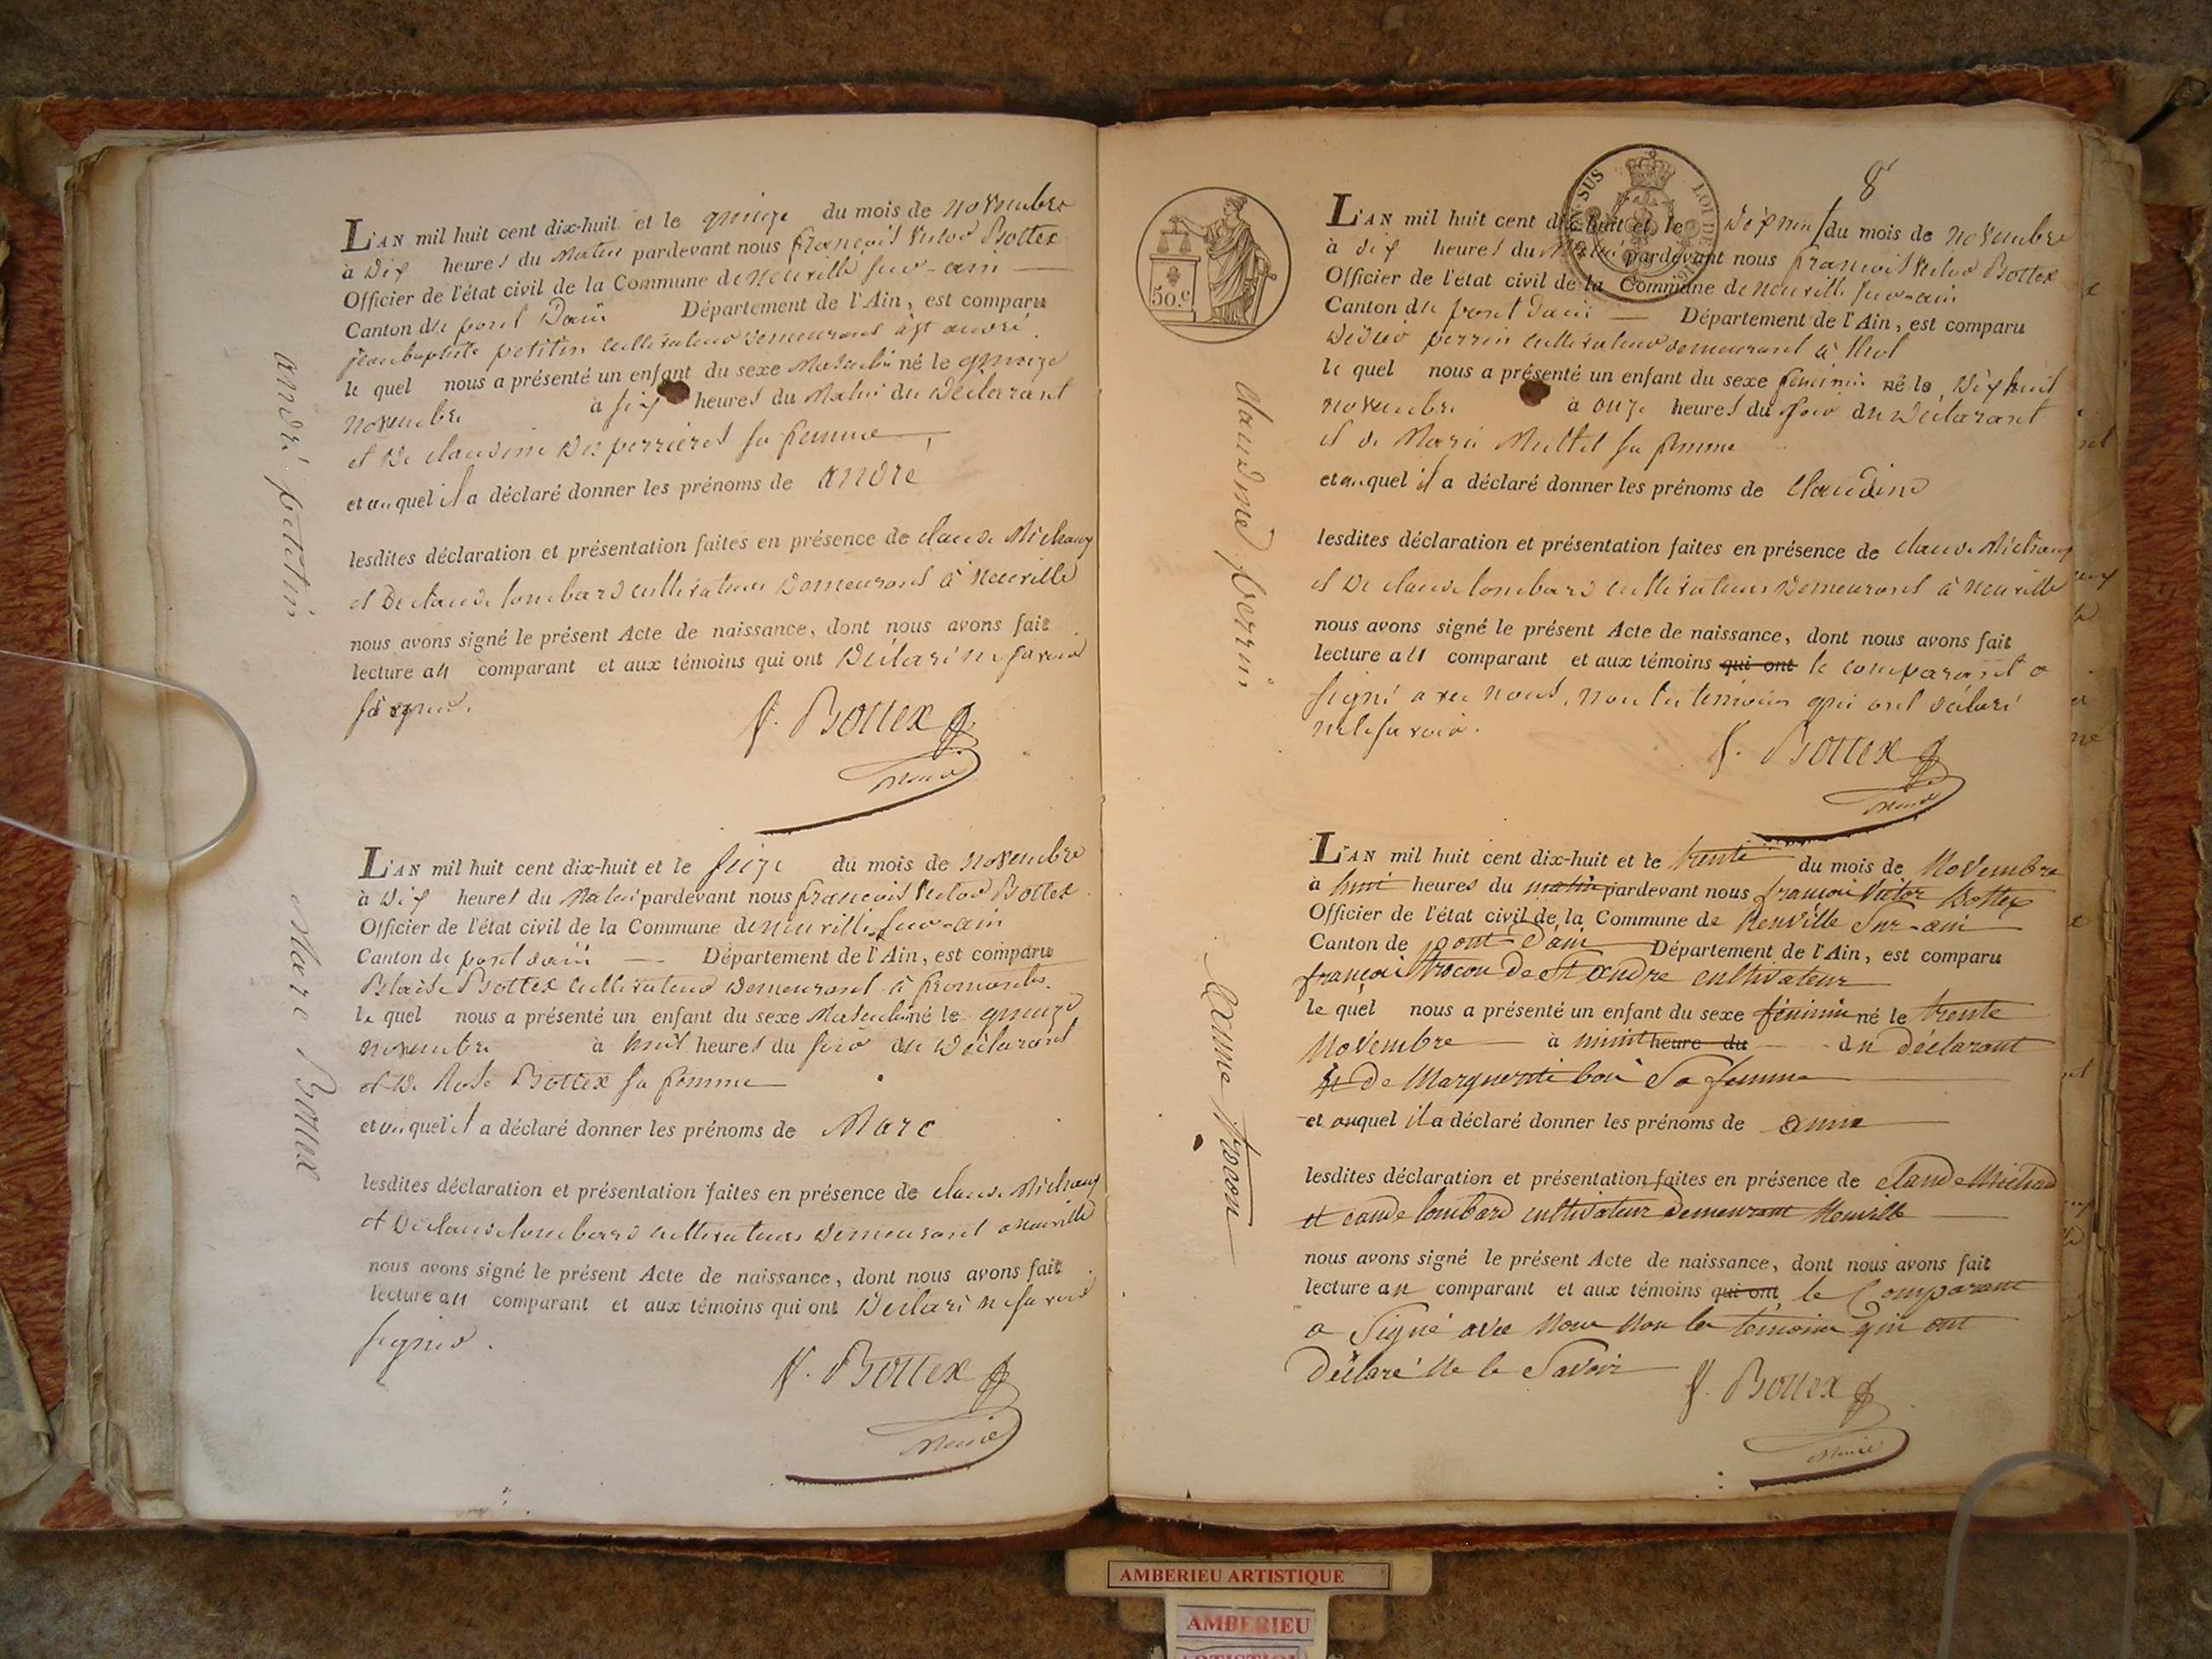 L'AN mil huit cent dix-huit et le quinze du mois de novembre
à dix heures du matin pardevant nous françois victor Bottex
Officier de l'état civil de la Commune de neuville sur-ain
Canton de pont Dain Département de l'Ain, est comparu
jean baptiste petitin cultivateur demeurant à st andré
le quel nous a présenté un enfant du sexe masculin né le quinze
novembre à six heures du matin du déclarant
et de claudine Des perrieres sa femme
et auquel il a déclaré donner les prénoms de andré
lesdites déclaration et présentation faites en présence de claude Michaux
et De claude lombard cultivateurs demeurant à neuville
nous avons signé le présent Acte de naissance, dont nous avons fait
lecture au comparant et aux témoins qui ont Déclaré ne savoir
signer.
f. Bottex
maire
andré petetin
L'AN mil huit cent dix-huit et le seize du mois de novembre
à dix heures du matin pardevant nous françois victor Bottex
Officier de l'état civil de la Commune de neuville sur-ain
Canton de pont dain Département de l'Ain, est comparu
Blaise Bottex cultivateur demeurant à fromentes
le quel nous a présenté un enfant du sexe masculin né le quinze
novembre à huit heures du soir du déclarant
et de Rose Bottex sa femme
et auquel il a déclaré donner les prénoms de Marc
lesdites déclaration et présentation faites en présence de claude Michaux
et De claude lombard cultivateurs demeurant a neuville
nous avons signé le présent Acte de naissance, dont nous avons fait
lecture au comparant et aux témoins qui ont Déclaré ne savoir
signer.
f. Bottex
maire
Marc Bottex
8
50.c
EN SUS
LOI DE
L'AN mil huit cent dix-huit et le dix neuf du mois de novembre
à dix heures du matin pardevant nous francois victor Bottex
Officier de l'état civil de la Commune de neuville sur-ain
Canton de pont dain Département de l'Ain, est comparu
Didier perrin cultivateur demeurant à thol
le quel nous a présenté un enfant du sexe feminin né le dix huit
novembre à onze heures du soir du déclarant
et de Marie sa femme
et auquel il a déclaré donner les prénoms de Claudine
lesdites déclaration et présentation faites en présence de claude Michaux
et De claude lombard cultivateurs demeurant à neuville
nous avons signé le présent Acte de naissance, dont nous avons fait
lecture au comparant et aux témoins qui ont le comparant a
signé avec nous, non les temoins qui ont déclaré
ne le savoir.
f. Bottex
maire
claudine perrin
L'AN mil huit cent dix-huit et le trente du mois de Novembre
à huit heures du matin pardevant nous françois Victor Bottex
Officier de l'état civil de la Commune de Neuville Sur-ain
Canton de pont-D'ain Département de l'Ain, est comparu
françois trocon de St andre cultivateur
le quel nous a présenté un enfant du sexe féminin né le trente
Novembre à minit heure du du déclarant
et de Marguerite boi Sa femme
et auquel il a déclaré donner les prénoms de anne
lesdites déclaration et présentation faites en présence de claude Michad
et caude lombard cultivateur demeurant Neuville
nous avons signé le présent Acte de naissance, dont nous avons fait
lecture au comparant et aux témoins qui ont le Comparant
a Signé avec Nous Non les temoins qui ont
Déclaré Ne le Savoir
f. Bottex
maire
Anne trocon
AMBERIEU ARTISTIQUE
AMBERIEU
ARTISTIQUE